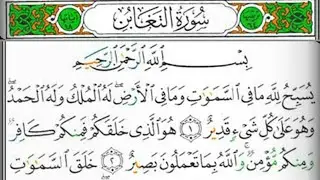 سُورَةُ التَّغَابُنِ
بِسْمِ اللَّهِ الرَّحْمَٰنِ الرَّحِيمِ
يُسَبِّحُ لِلَّهِ مَا فِي السَّمَاوَاتِ وَمَا فِي الْأَرْضِ ۖ لَهُ الْمُلْكُ وَلَهُ الْحَمْدُ ۖ
وَهُوَ عَلَىٰ كُلِّ شَيْءٍ قَدِيرٌ ١ هُوَ الَّذِي خَلَقَكُمْ فَمِنكُمْ كَافِرٌ
وَمِنكُم مُّؤْمِنٌ ۚ وَاللَّهُ بِمَا تَعْمَلُونَ بَصِيرٌ ٢ خَلَقَ السَّمَاوَاتِ